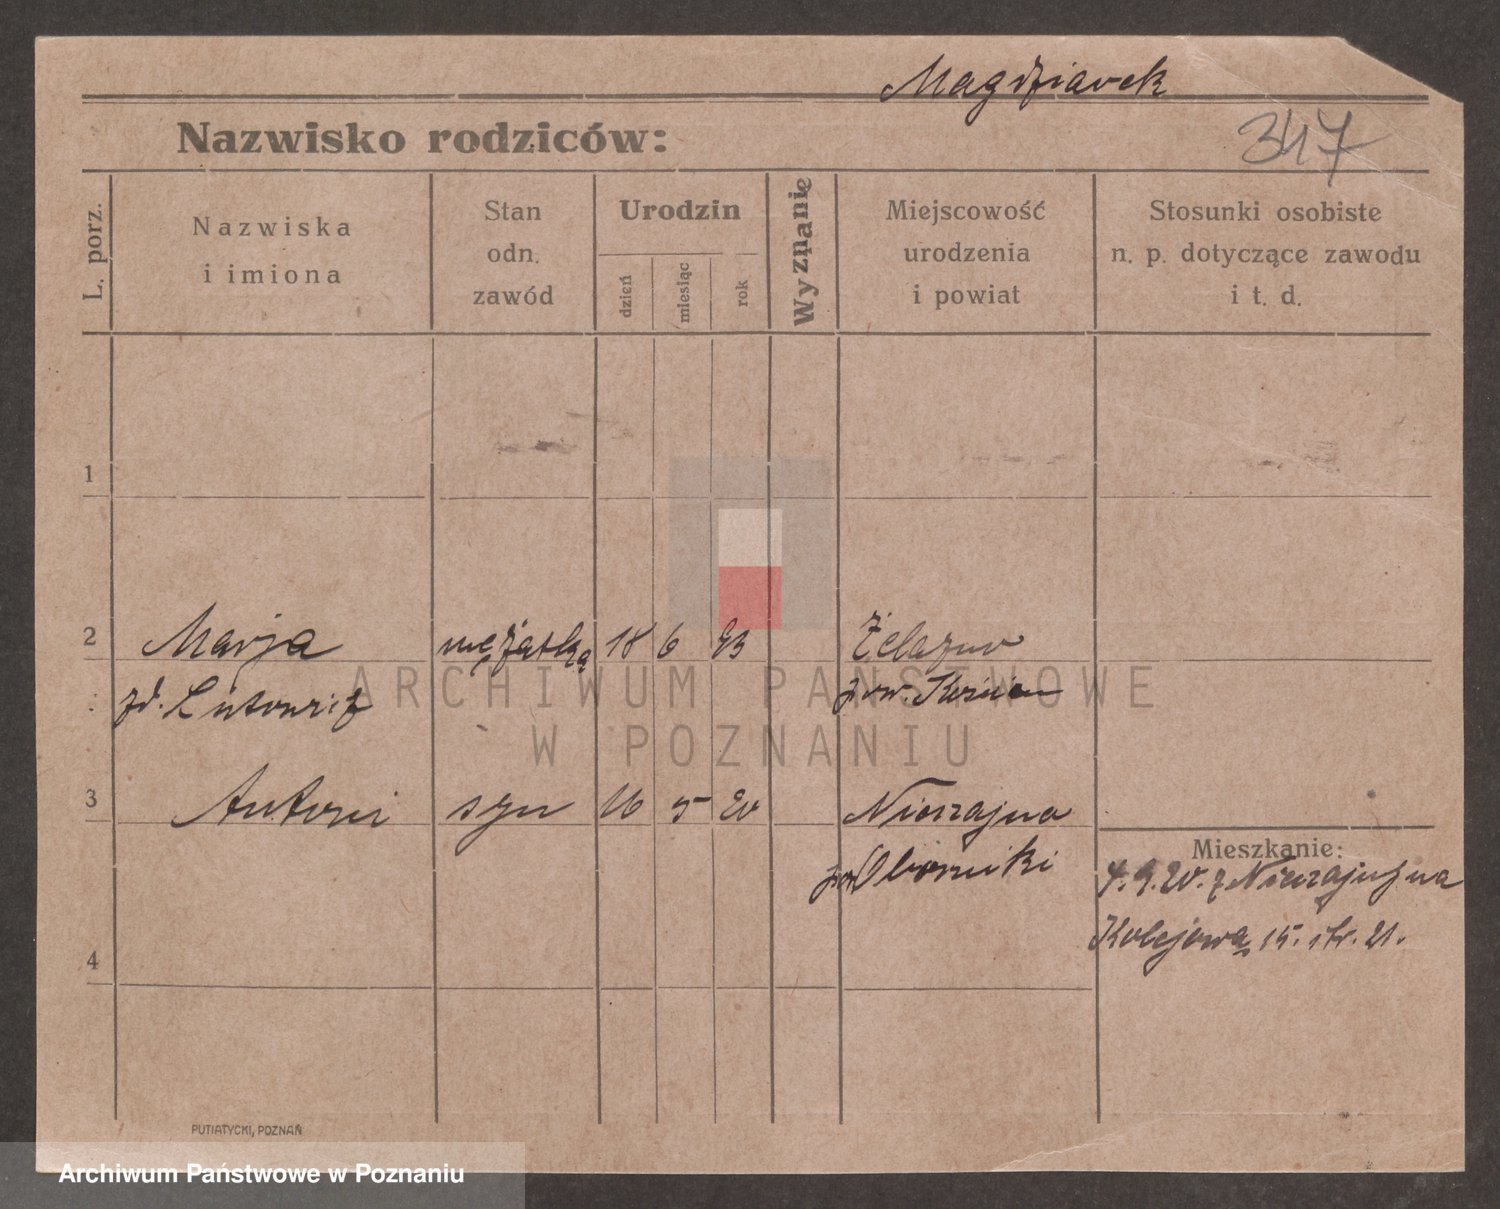 Magdziarek
Nazwisko rodziców:
347
L. porz.
Nazwiska
i imiona
Stan
odn.
zawód
Urodzin
dzień
miesiąc
rok
Wyznanie
Miejscowość
urodzenia
i powiat
Stosunki osobiste
n. p. dotyczące zawodu
i t. d.
1
2 Marja mężatka 18 6 93 Żelazno
zd. pow. Kościan
ARCHIWUM PAŃSTWOWE
W POZNANIU
3 Antoni syn 16 5 20 Nieczajna
pow Oborniki
Mieszkanie:
4. 9. 20. z na
Kolejowa 15. str. 21.
4
PUTIATYCKI, POZNAŃ
Archiwum Państwowe w Poznaniu